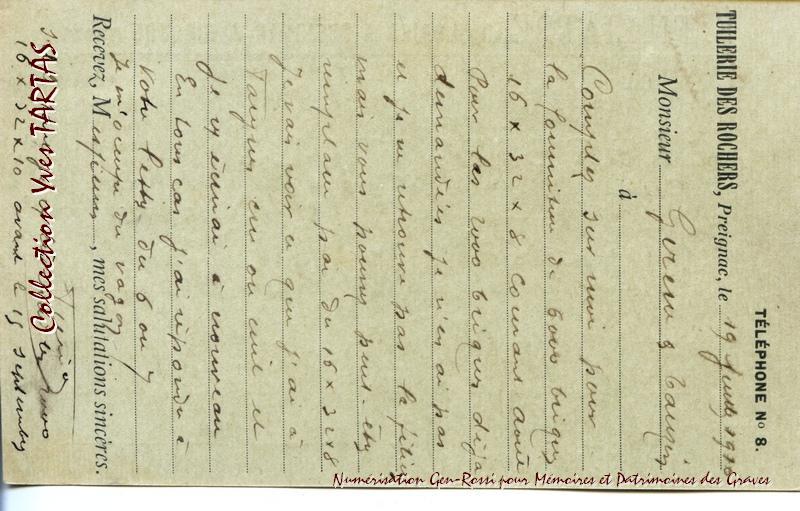 TÉLÉPHONE No 8.
TUILERIE DES ROCHERS, Preignac, le 19 Juill 19
Monsieur
à
Comptez sur moi pour
la fourniture de 6000 briques
16 x 32 x 8 courant août
Pour les 2000 briques déjà
demandées je n'en ai pas
et je ne retrouve pas la
mais vous pourrez peut-être
remplacer par du 16 x 32 x 8
Je vais voir ce que j'ai à
ou cuit et
Je écrirai à nouveau
En tous cas j'ai répondu à
votre lettre du 6 ou 7
Je m'occupe du wagon
Recevez, Messieurs, mes salutations sincères.
16 x 32 x 10 avant le 15 septembre
Collection Yves TARTAS
Numérisation Gen-Rossi pour Mémoires et Patrimoines des Graves